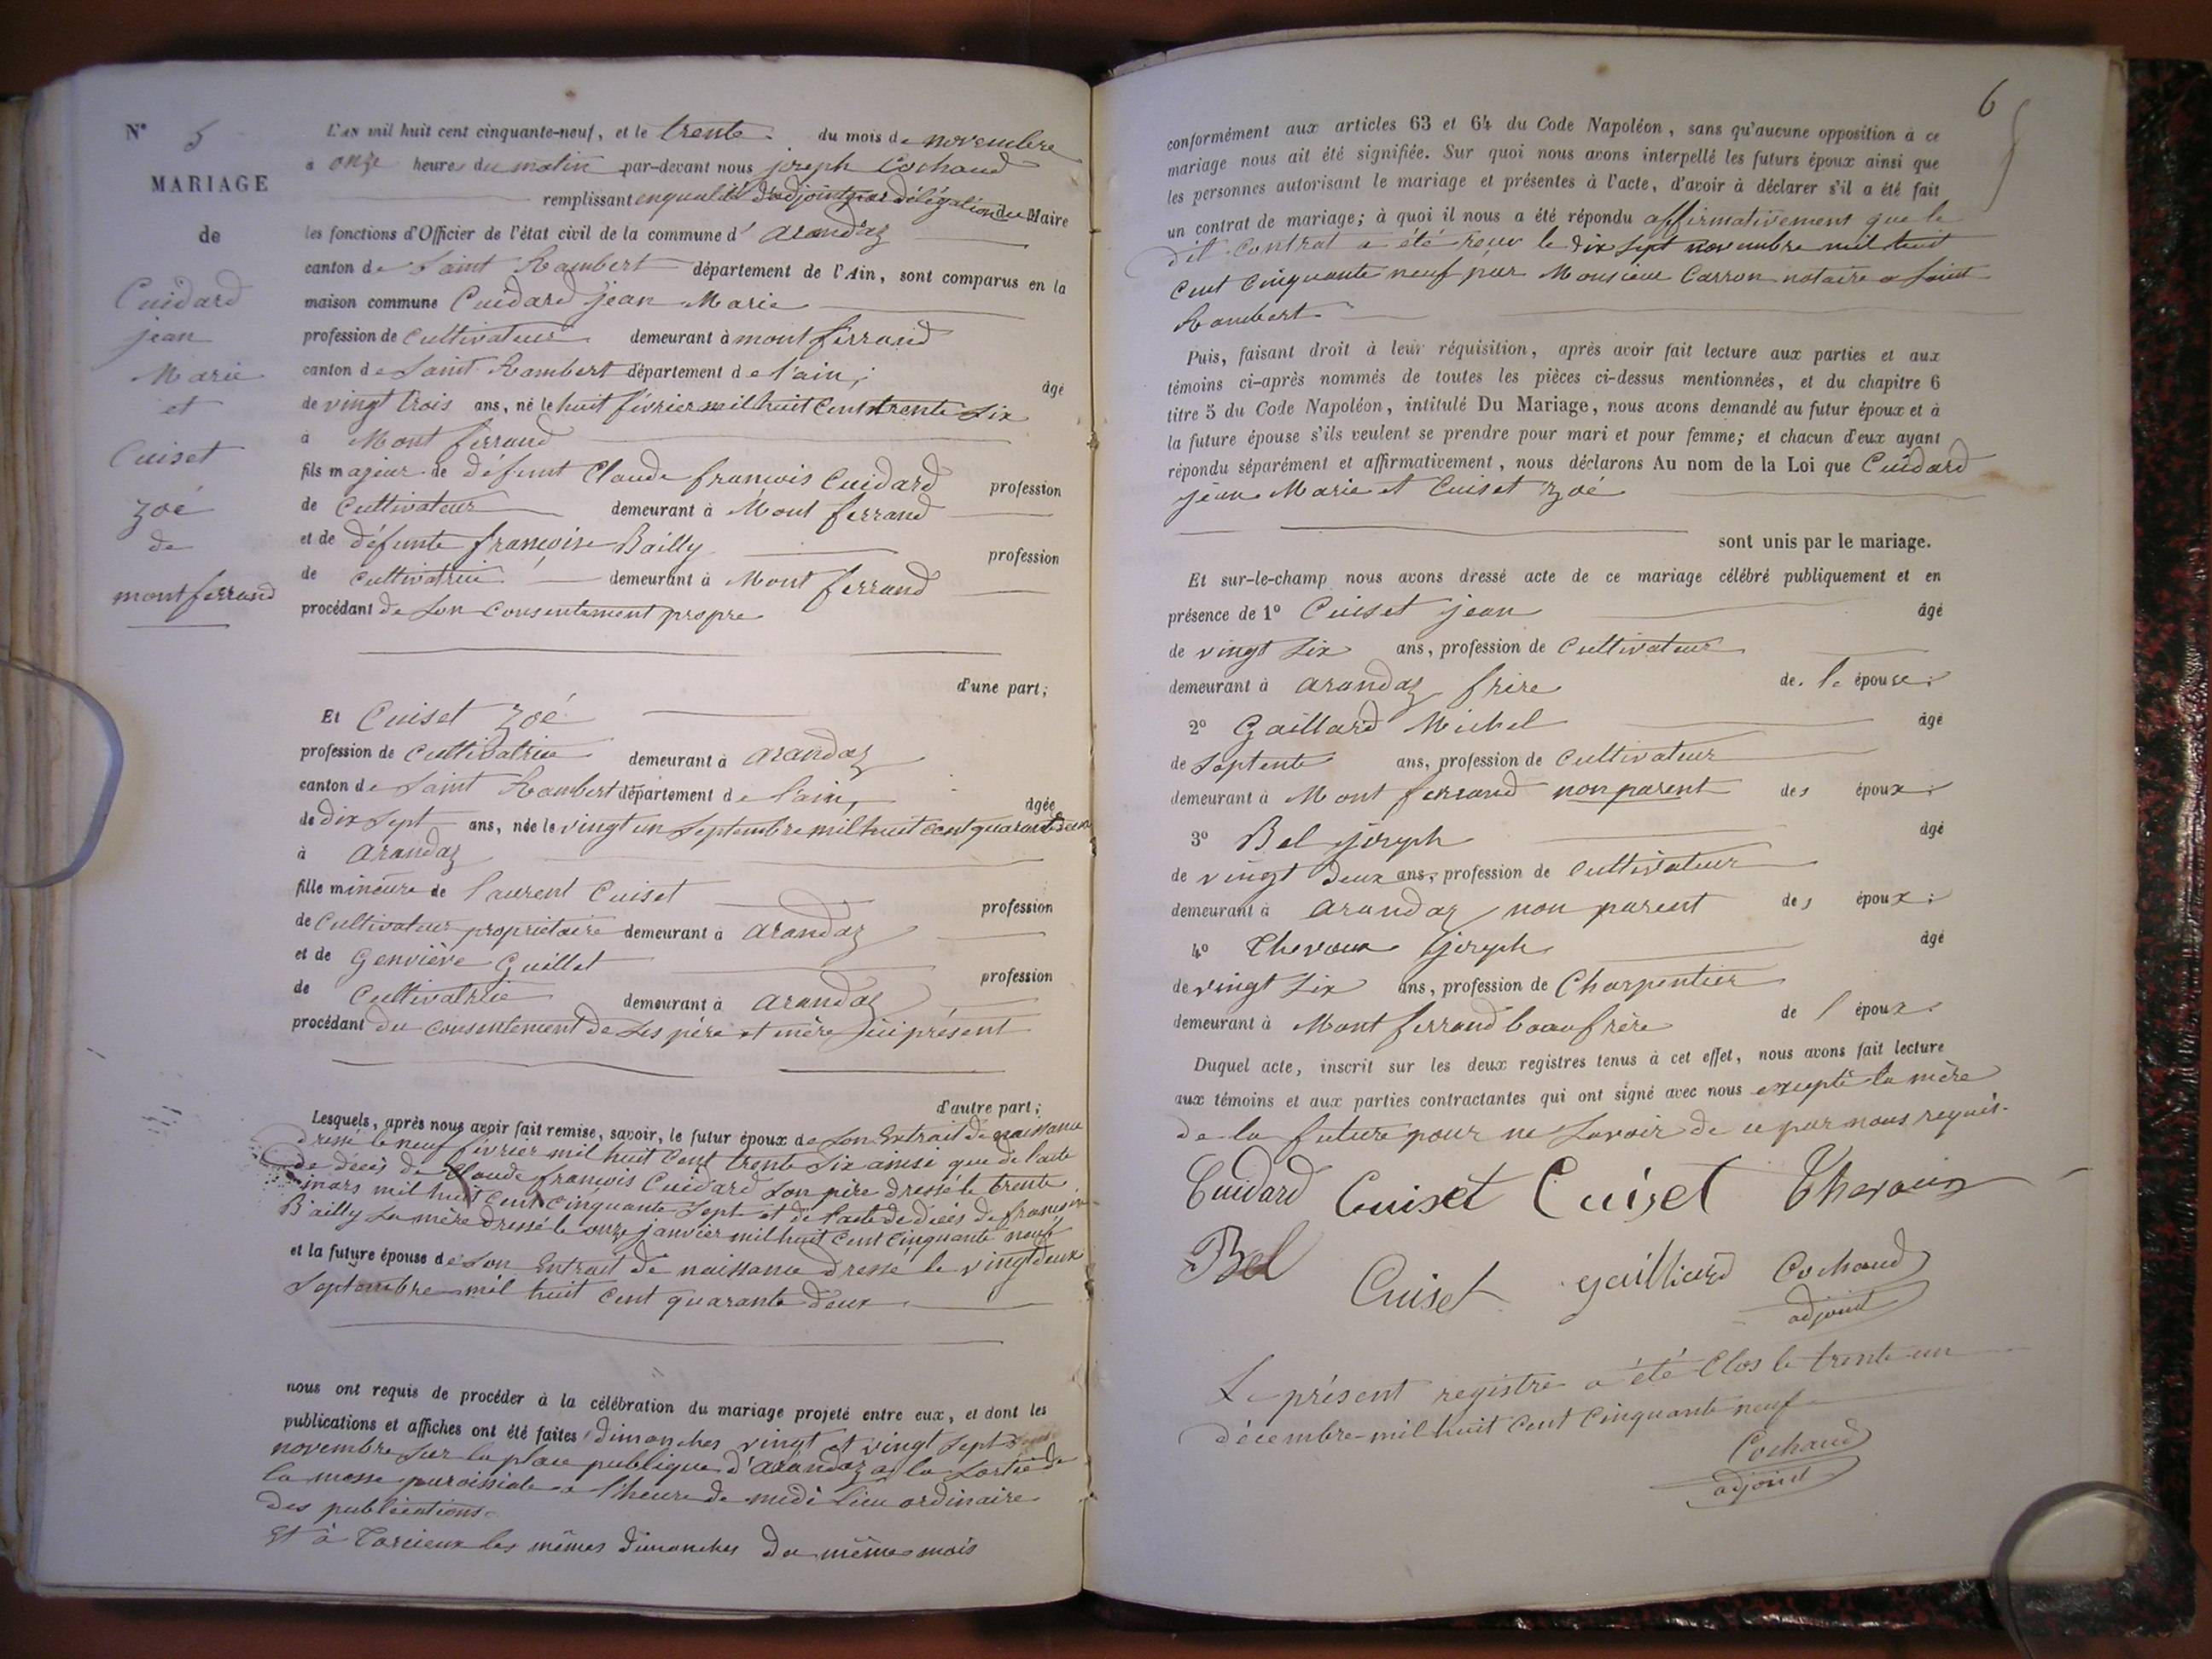 N° 5
MARIAGE
de
Cuidard
jean
Marie
et
Cuiset
zoé
de
montferrand
L'AN mil huit cent cinquante-neuf, et le trente du mois de novembre
à onze heures du matin par-devant nous joseph Cochaud
remplissant en qualité d'adjoint par délégation du Maire
les fonctions d'Officier de l'état civil de la commune d' arandaz
canton de Saint Rambert département de l'Ain, sont comparus en la
maison commune Cuidard jean Marie
profession de Cultivateur demeurant à mont ferrand
canton de Saint Rambert département de l'ain, âgé
de vingt trois ans, né le huit février mil huit Cent trente Six
à Mont ferrand
fils majeur de défunt Claude francois Cuidard profession
de Cultivateur demeurant à Mont ferrand
et de défunte francoise Bailly profession
de cultivatrice demeurant à Mont ferrand
procédant de Son Consentement propre
d'une part;
Et Cuiset Zoé
profession de Cultivatrice demeurant à arandaz
canton de Saint Rambert département de l'ain, âgée
de dix Sept ans, née le vingt un Septembre mil huit cent quarante deux
à arandaz
fille mineure de laurent Cuiset profession
de Cultivateur proprietaire demeurant à arandaz
et de Genviève Guillet profession
de Cultivatrice demeurant à arandaz
procédant du consentement de Ses père et mère ici présent
d'autre part;
Lesquels, après nous avoir fait remise, savoir, le futur époux de Son Extrait de naissance
dressé le neuf février mil huit Cent trente Six ainsi que de l'acte
de décès de Claude francois Cuidard Son père dressé le trente
mars mil huit Cent Cinquante Sept et de l'acte de décès de francoise
Bailly Sa mère dressé le onze janvier mil huit Cent Cinquante neuf
et la future épouse de Son Extrait de naissance dressé le vingt deux
Septembre mil huit Cent quarante deux
nous ont requis de procéder à la célébration du mariage projeté entre eux, et dont les
publications et affiches ont été faites dimanches vingt et vingt Sept
novembre Sur la place publique d'arandaz a la Sortie de
la messe paroissiale a l'heure de midi lieu ordinaire
des publications
Et à Torcieux les mêmes dimanches du même mois
6
conformément aux articles 63 et 64 du Code Napoléon, sans qu'aucune opposition à ce
mariage nous ait été signifiée. Sur quoi nous avons interpellé les futurs époux ainsi que
les personnes autorisant le mariage et présentes à l'acte, d'avoir à déclarer s'il a été fait
un contrat de mariage; à quoi il nous a été répondu affirmativement que le
dit Contrat a été reçu le dix Sept novembre mil huit
Cent Cinquante neuf par Monsieur Carron notaire a Saint
Rambert
Puis, faisant droit à leur réquisition, après avoir fait lecture aux parties et aux
témoins ci-après nommés de toutes les pièces ci-dessus mentionnées, et du chapitre 6
titre 5 du Code Napoléon, intitulé Du Mariage, nous avons demandé au futur époux et à
la future épouse s'ils veulent se prendre pour mari et pour femme; et chacun d'eux ayant
répondu séparément et affirmativement, nous déclarons Au nom de la Loi que Cuidard
jean Marie et Cuiset zoé
sont unis par le mariage.
Et sur-le-champ nous avons dressé acte de ce mariage célébré publiquement et en
présence de 1° Cuiset jean âgé
de vingt Six ans, profession de Cultivateur
demeurant à arandaz frère de l'épouse
2° Gaillard Michel âgé
de Soptente ans, profession de Cultivateur
demeurant à Mont ferrand non parent des époux
3° Bel joseph âgé
de vingt deux ans, profession de Cultivateur
demeurant à arandaz non parent des époux
4° Thevoux joseph âgé
de vingt Six ans, profession de Charpentier
demeurant à Mont ferrand beaufrère de l époux
Duquel acte, inscrit sur les deux registres tenus à cet effet, nous avons fait lecture
aux témoins et aux parties contractantes qui ont signé avec nous excepté la mère
de la future pour ne Savoir de ce par nous requis.
Cuidard Cuiset Cuiset Thevoux
Bel Cuiset gailliard Cochaud
adjoint
Le présent registre a été Clos le trente un
décembre mil huit Cent Cinquante neuf
Cochaud
adjoint